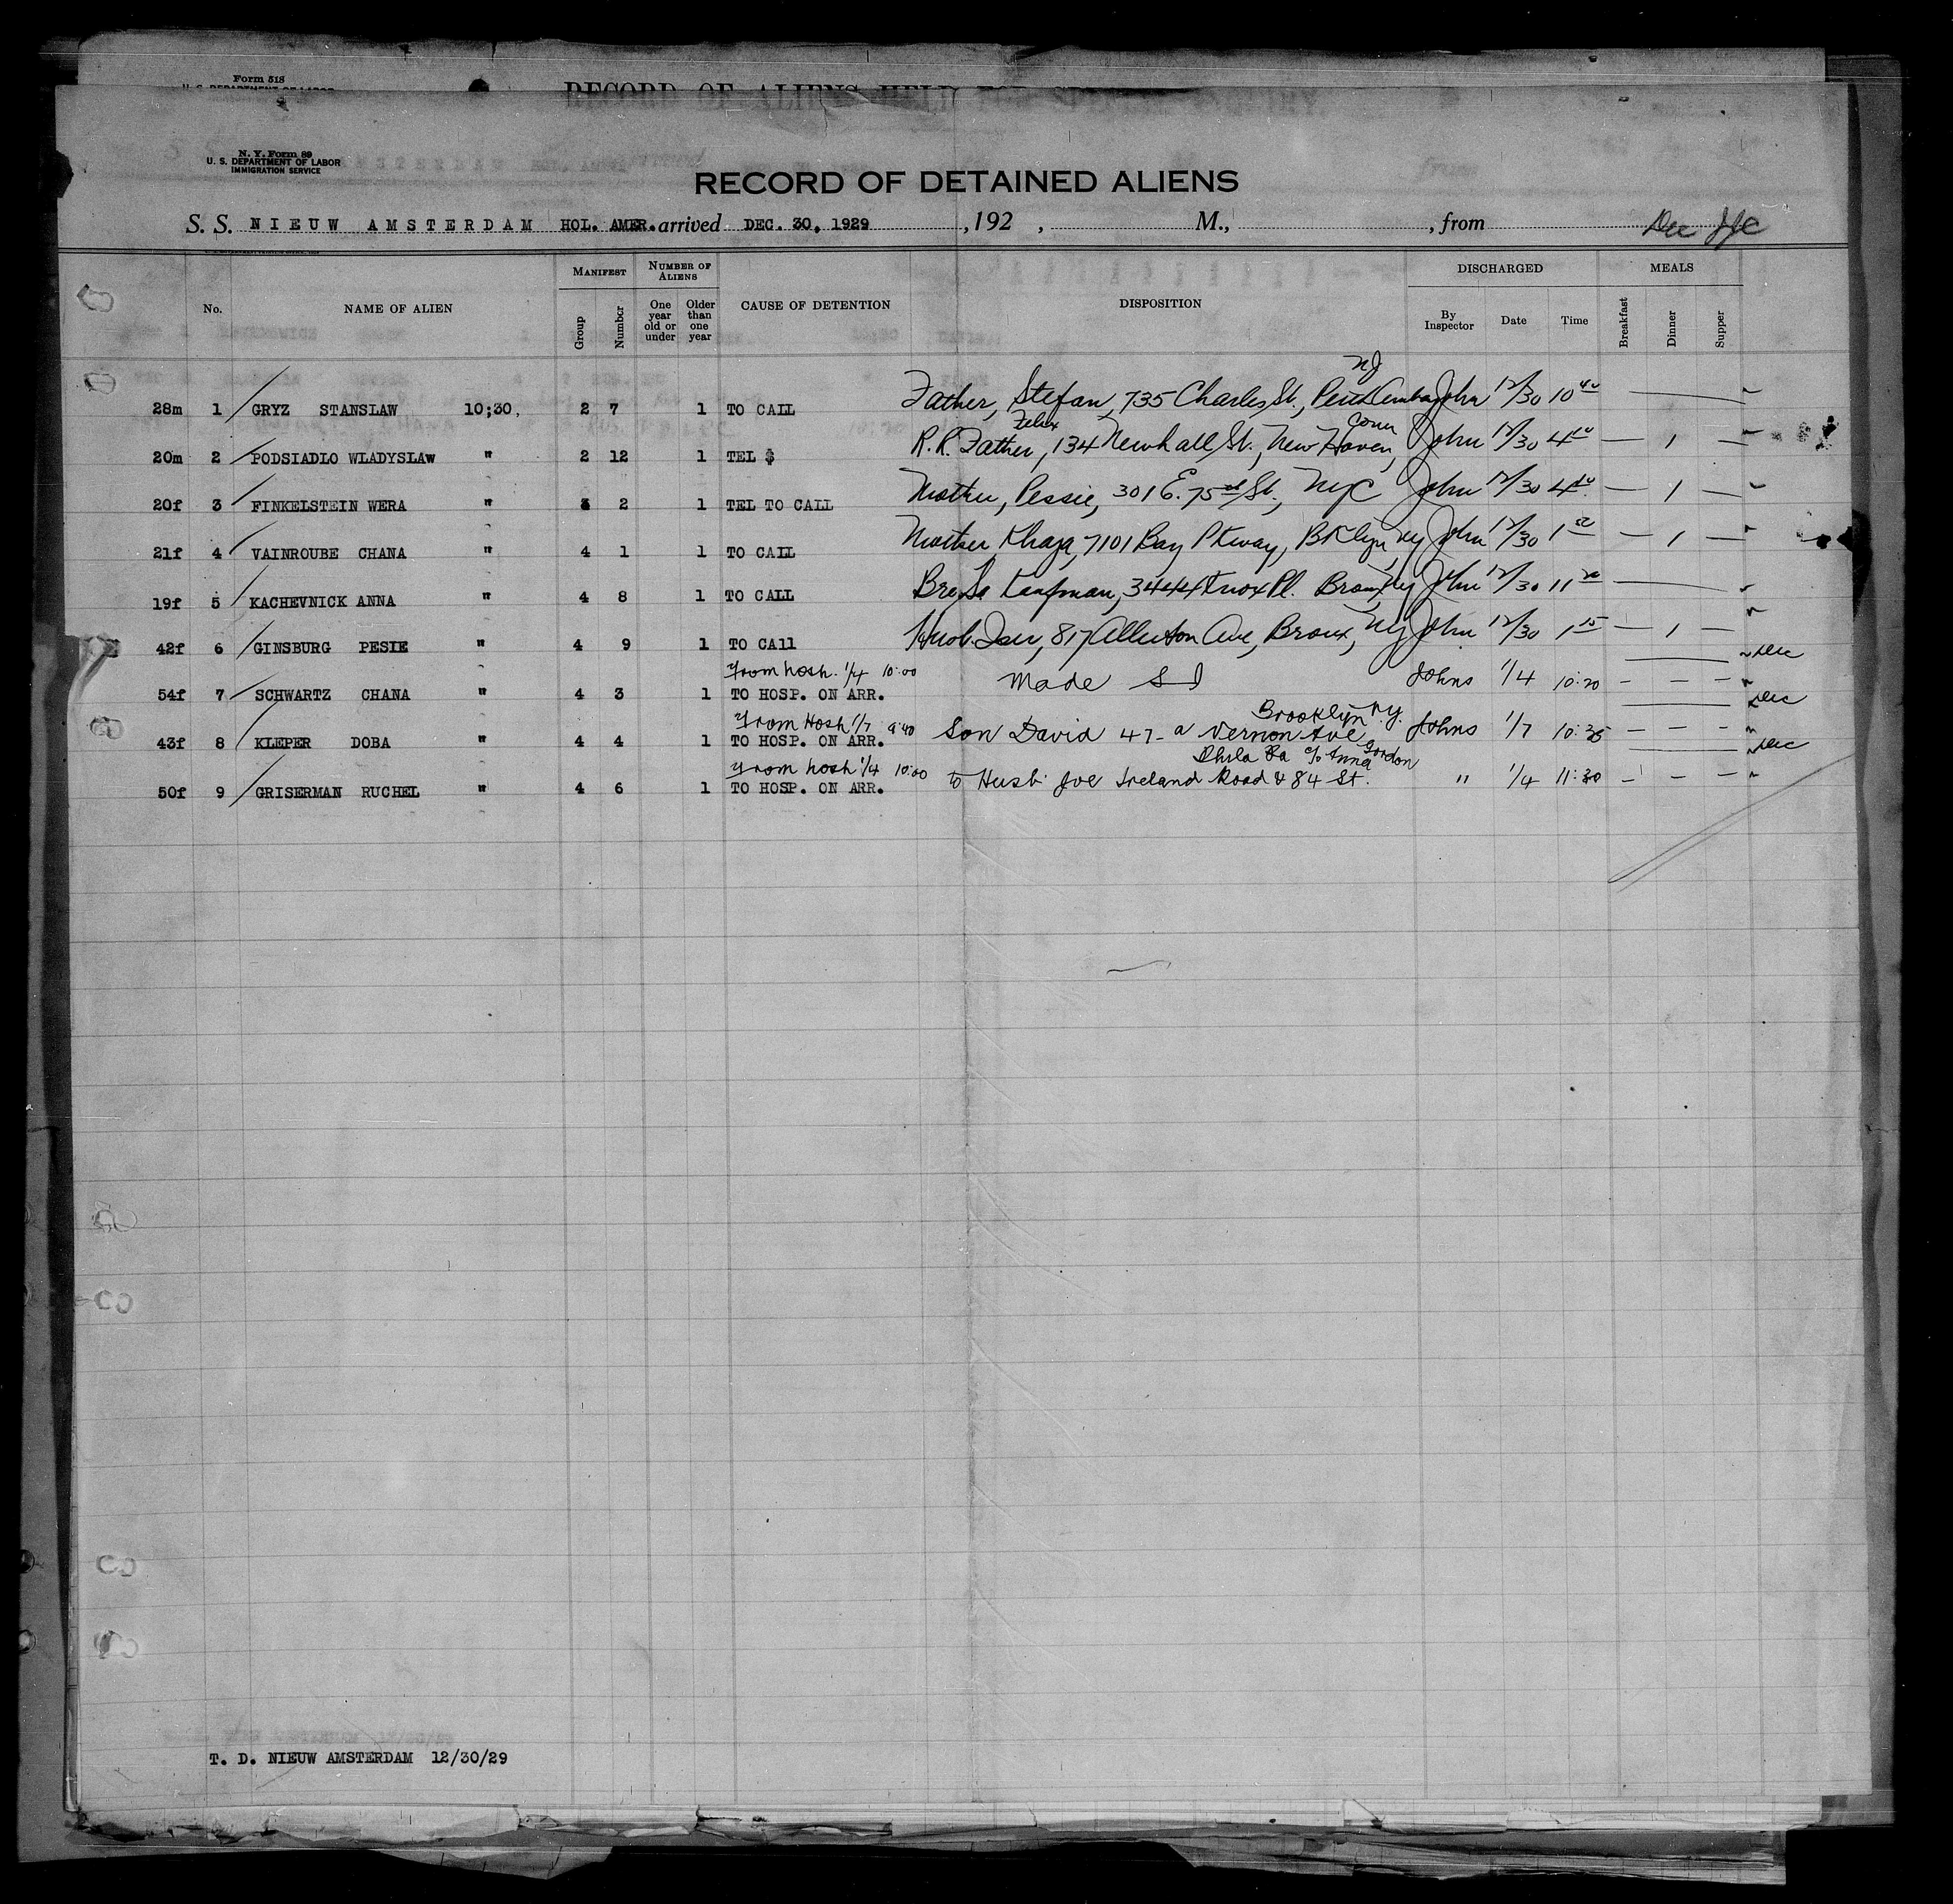 Form 318
U. S. DEPARTMENT OF LABOR
RECORD OF ALIENS HELD FOR SPECIAL INQUIRY.
N. Y. Form 89
U. S. DEPARTMENT OF LABOR
IMMIGRATION SERVICE
RECORD OF DETAINED ALIENS
S. S. NIEUW AMSTERDAM HOL. AMER. arrived DEC. 30, 1929 , 192 , M., , from
No. NAME OF ALIEN MANIFEST Group Number NUMBER OF ALIENS One year old or under Older than one year CAUSE OF DETENTION DISPOSITION DISCHARGED By Inspector Date Time MEALS Breakfast Dinner Supper
NJ
28m 1 GRYZ STANSLAW 10;30, 2 7 1 TO CALL Father, Stefan, 735 Charles St., Perth Amboy John 12/30 10 40
Felix Conn
20m 2 PODSIADLO WLADYSLAW " 2 12 1 TEL $ R.R. Father, 134 Newhall St., New Haven, John 12/30 4 — 1 —
20f 3 FINKELSTEIN WERA " 2 1 TEL TO CALL Mother, Pessie, 301 E. 75 St., NYC John 12/30 4 — 1 —
21f 4 VAINROUBE CHANA " 4 1 1 TO CALL Mother 7101 Bay Pkway, Bklyn, NY John 12/30 1 — 1 —
19f 5 KACHEVNICK ANNA " 4 8 1 TO CALL Kaufman, 3444 Knox Pl. Bronx, NY John 12/30 11
42f 6 GINSBURG PESIE " 4 9 1 TO CAll 817 Allerton Ave, Bronx, NY John 12/30 1 15 — 1 —
From hosp. 1/4 10:00
54f 7 SCHWARTZ CHANA " 4 3 1 TO HOSP. ON ARR. Made S I Johns 1/4 10:20 – – –
From Hosp 1/7 9:40 Brooklyn N.Y.
43f 8 KLEPER DOBA " 4 4 1 TO HOSP. ON ARR. Son David 47-a Vernon Ave Johns 1/7 10:35 – – –
From hosp 1/4 10:00 Phila Pa c/o Anna Gordon
50f 9 GRISERMAN RUCHEL " 4 6 1 TO HOSP. ON ARR. to Husb: Joe Ireland Road & 84 St. " 1/4 11:30 – – –
T. D. NIEUW AMSTERDAM 12/30/29